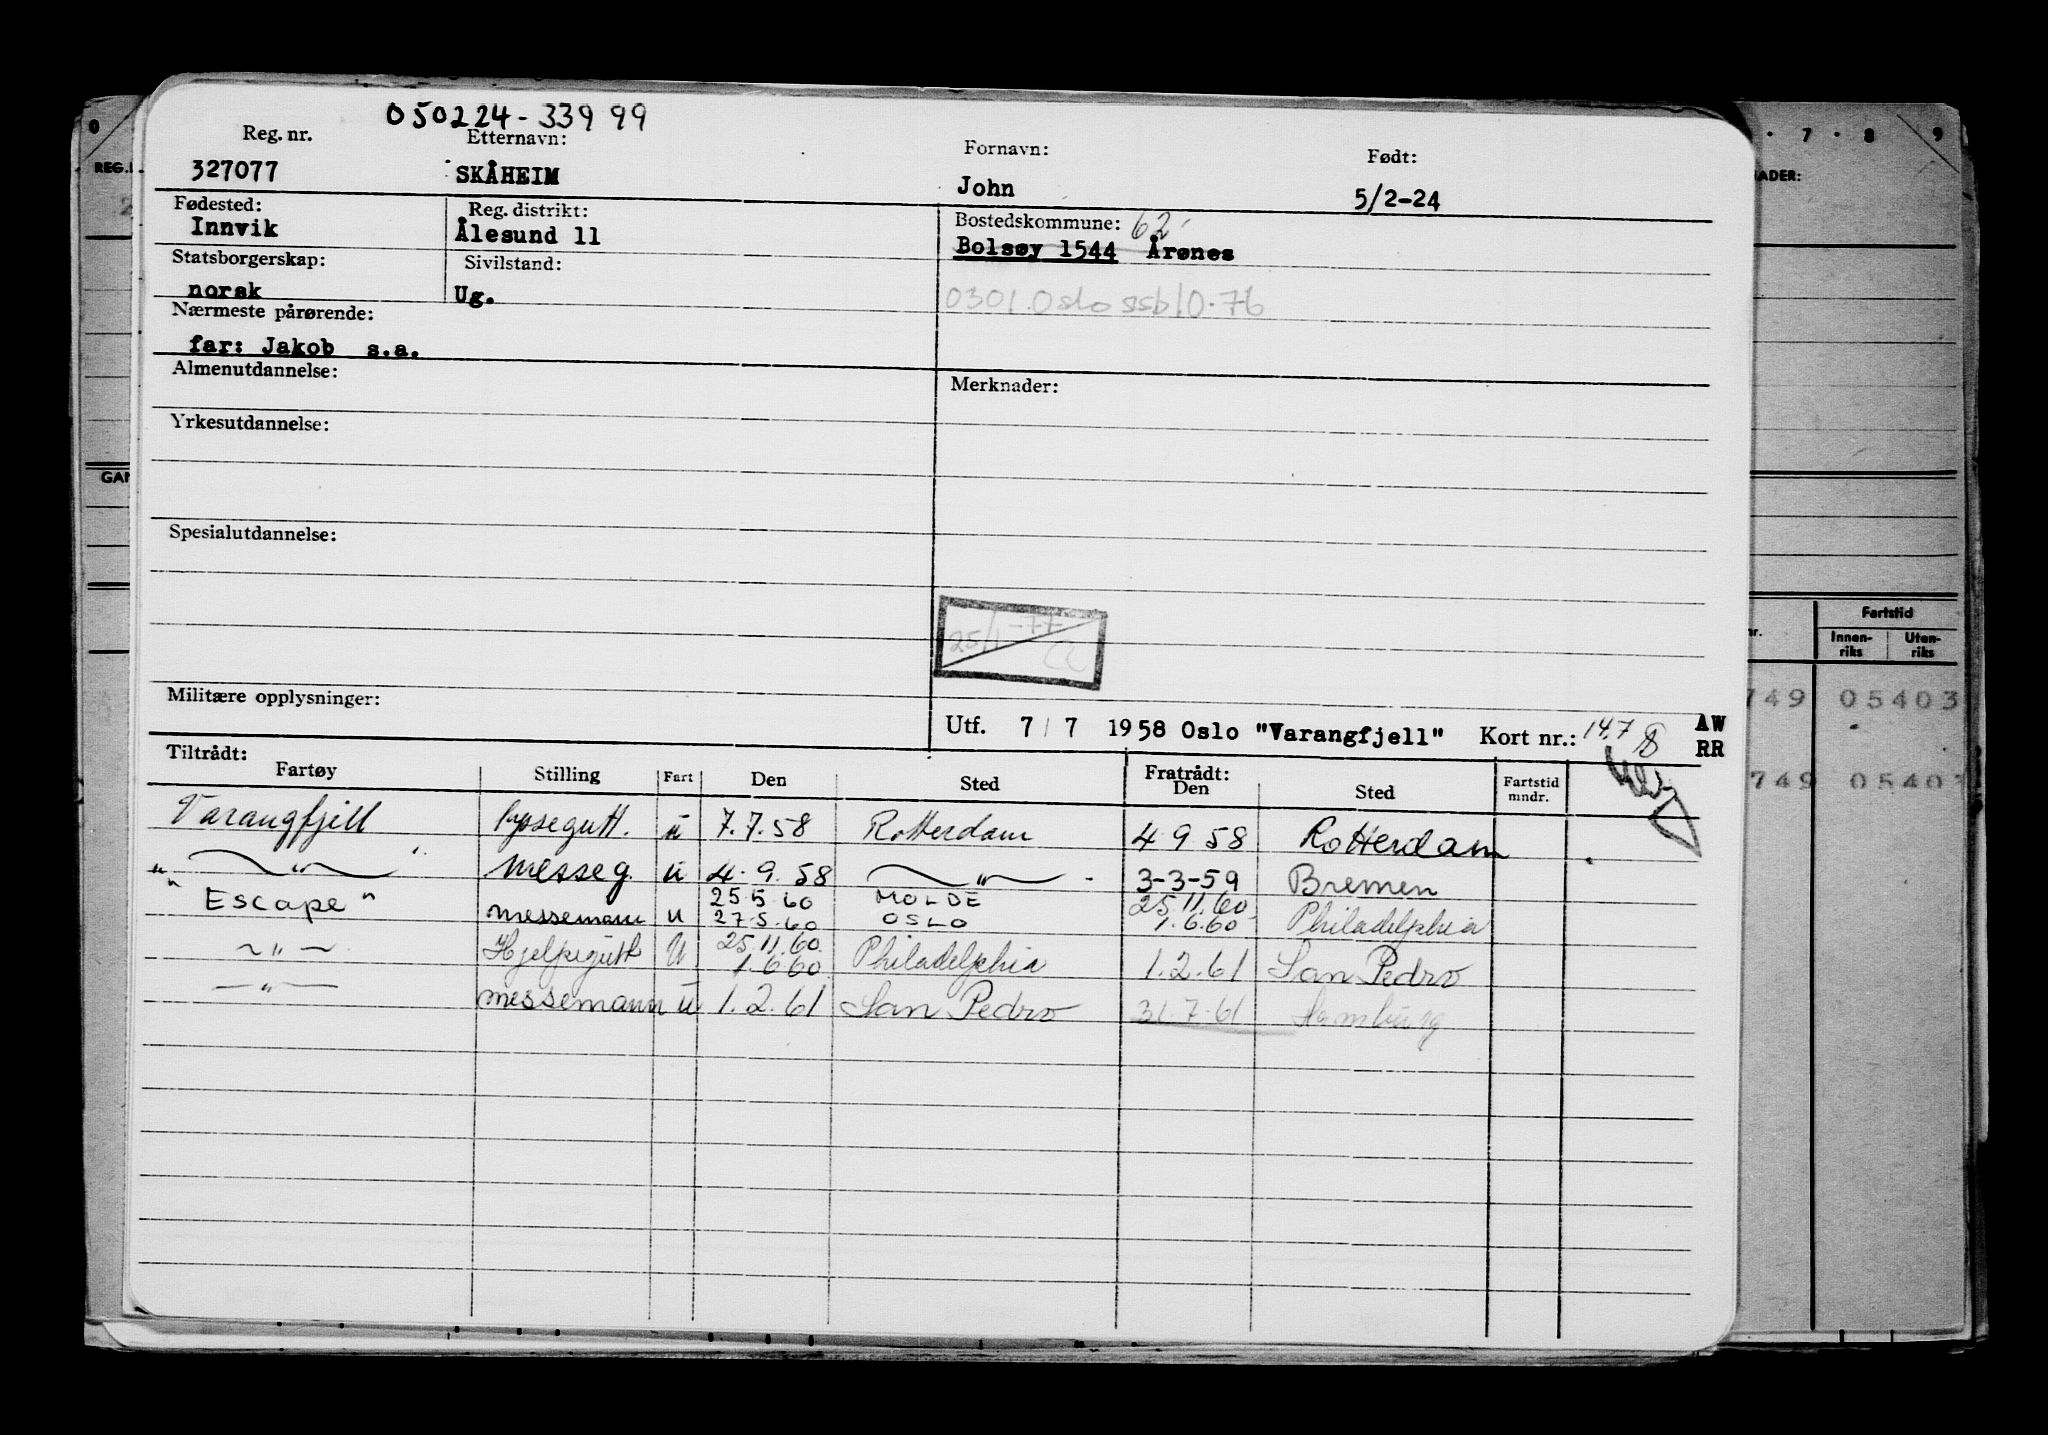 050224-33999
Reg. nr. Etternavn: Fornavn: Født:
327077 SKÅHEIM John 5/2-24
Fødested: Reg. distrikt: Bostedskommune: 62
Innvik Ålesund 11 Bolsøy 1544 Årønes
Statsborgerskap: Sivilstand:
norsk Ug. 0301 Oslo ssb 10.76
Nærmeste pårørende:
far: Jakob s.a.
Almenutdannelse: Merknader:
Yrkesutdannelse:
Spesialutdannelse:
25/1-77
Militære opplysninger:
Utf. 7/7 1958 Oslo "Varangfjell" Kort nr.: AW
RR
Tiltrådt: Fratrådt:
Fartøy Stilling Fart Den Sted Den Sted Fartstid mndr.
Varangfjell bysegutt. u 7.7.58 Rotterdam 4.9.58 Rotterdam
" messeg. u 4.9.58 " 3-3-59 Bremen
25.5.60 MOLDE 25.11.60
"Escape" messemann u 27.5.60 OSLO 1.6.60 Philadelphia
25.11.60
" Hjelpegutt U 1.6.60 Philadelphia 1.2.61 San Pedro
" messemann u 1.2.61 San Pedro 31.7.61 Hamburg
0 7 8 9
REG.
ADER:
GAN
nr. Fartstid
Innen-riks Uten-riks
749 05403
749 0540